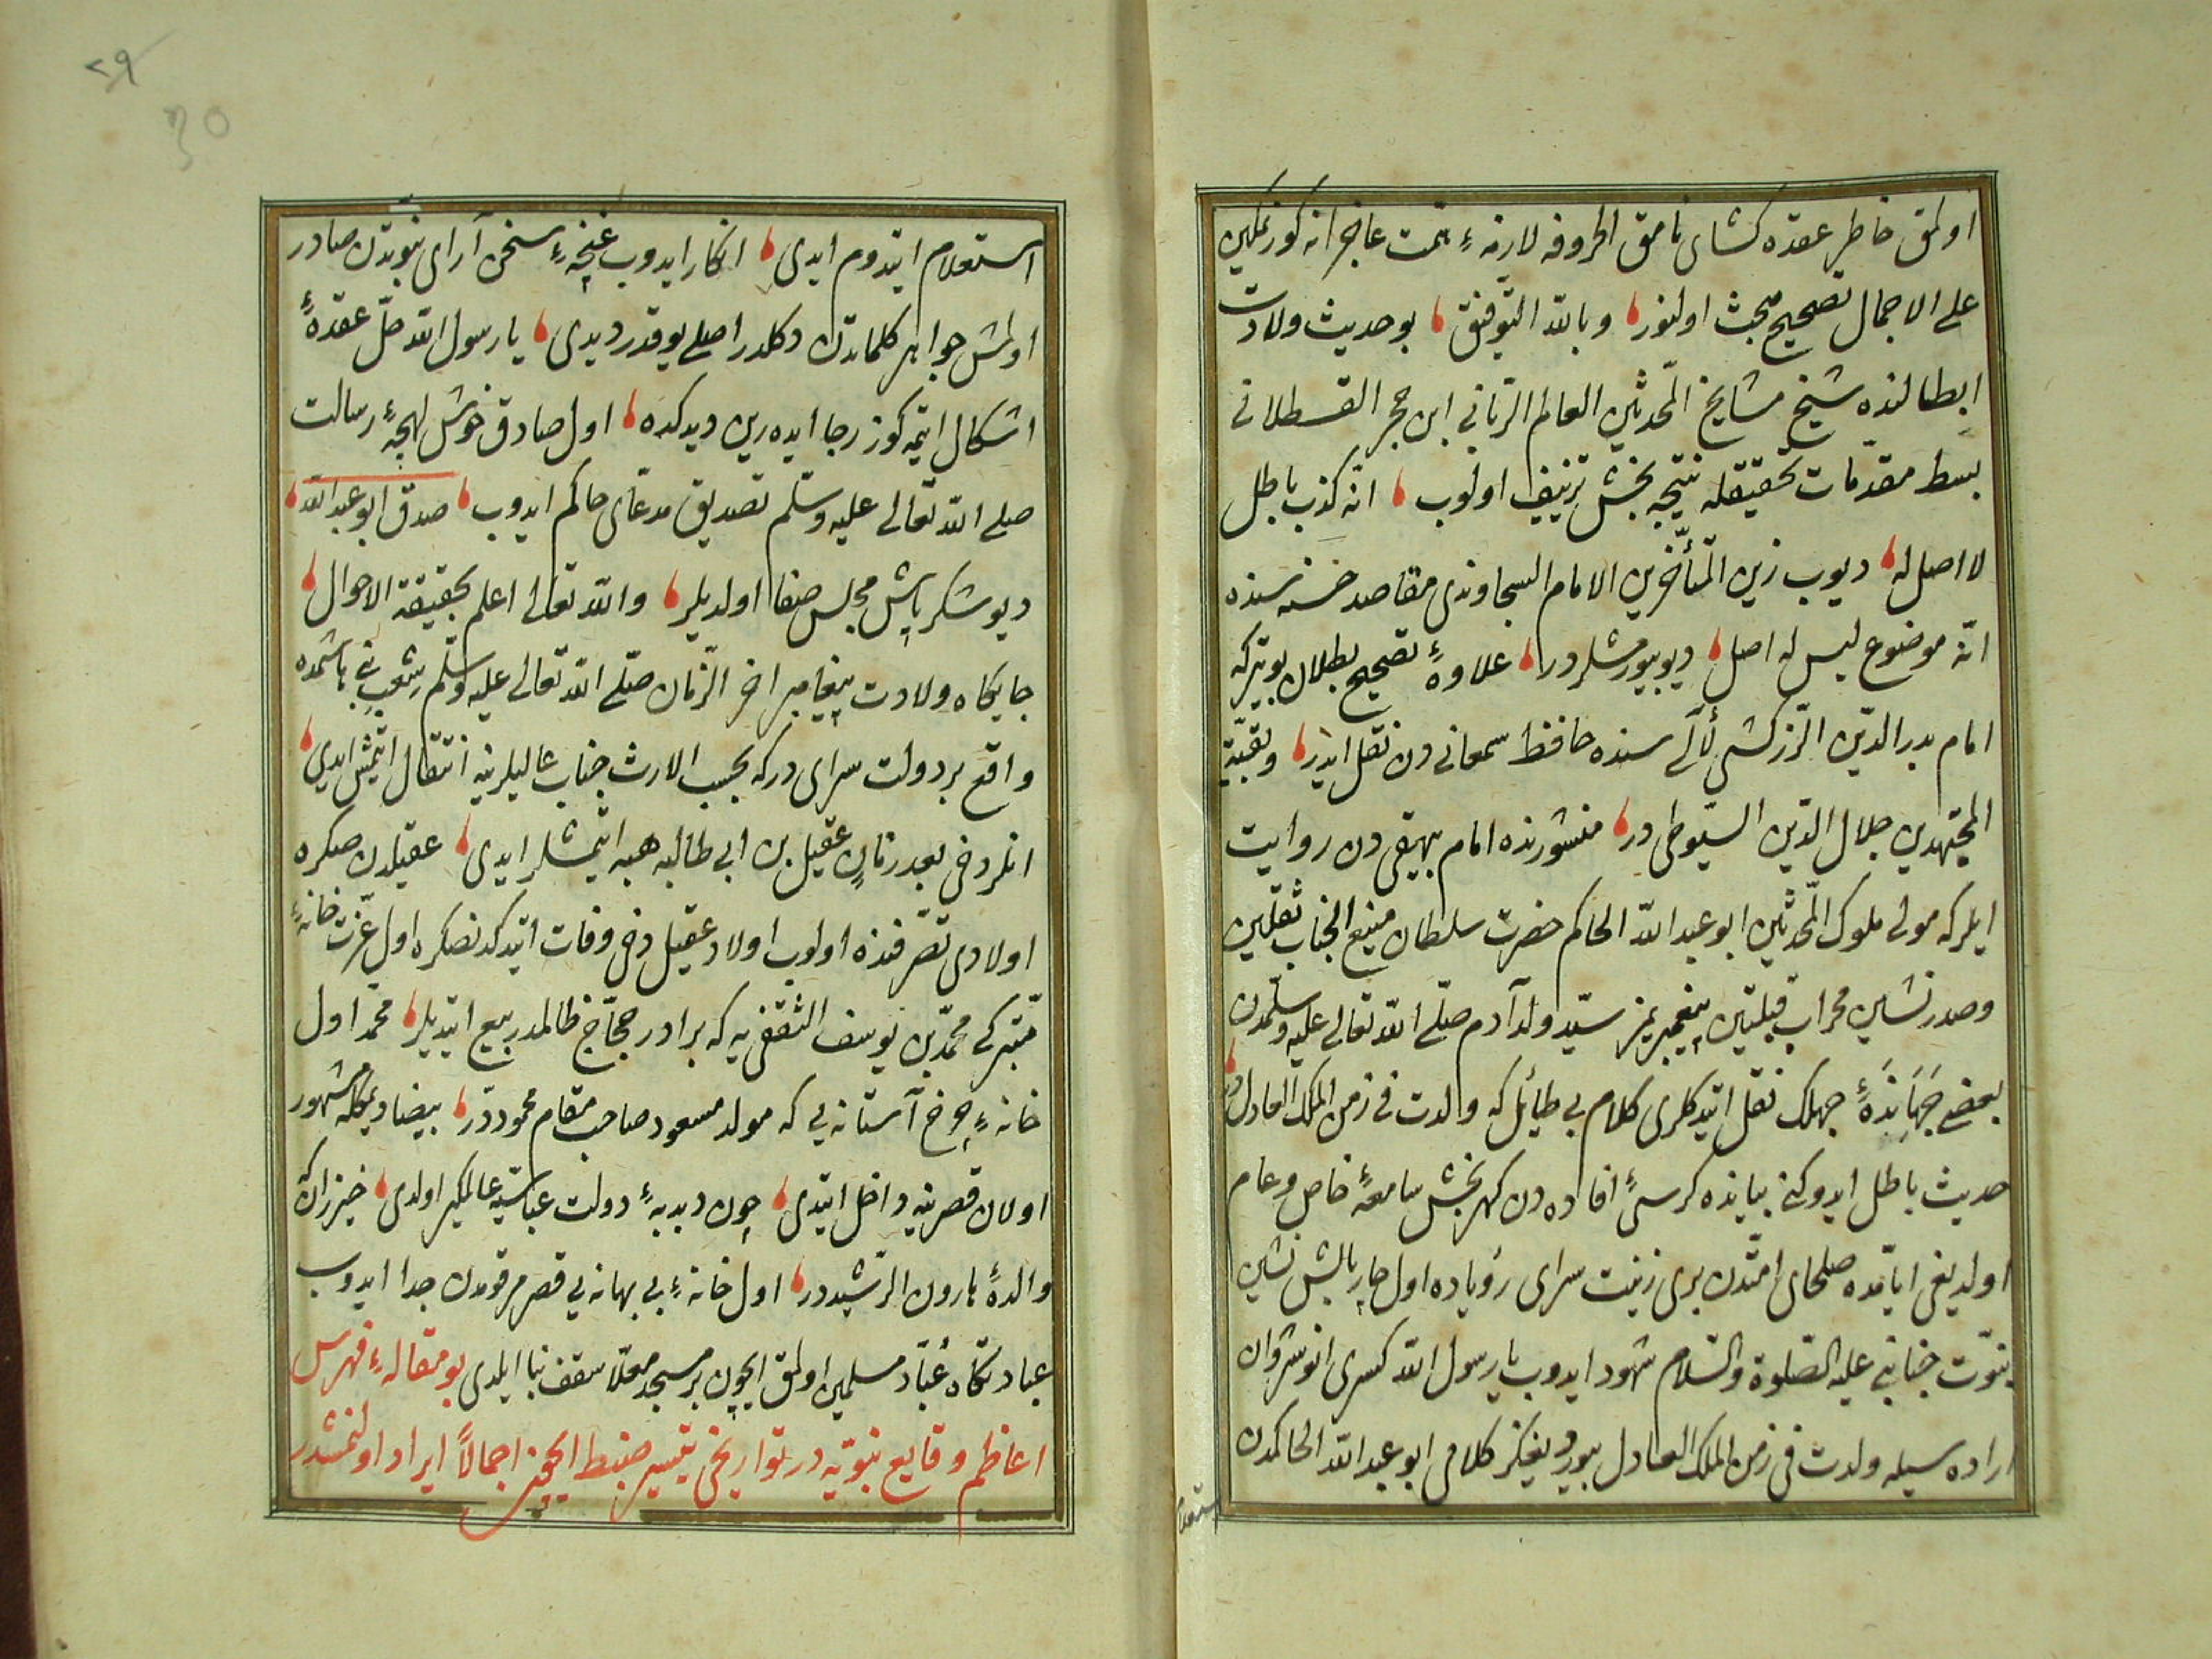 اولمق خاطر عقده كشاى نامق الحروفه لازمهٔ همت عاجزانه كورنمكين
على الاجمال تصحيح مبحث اولنور، وبالله التوفيق، بو حديث ولادت
ابطالنده شيخ مشايخ المحدثين العالم الربانى ابن حجر القسطلانى
بسط مقدمات تحقيقله نتيجه بخش تزييف اولوب، انه كذب باطل
لا اصل له، ديوب زين المتأخرين الامام السجاوندى مقاصد حسنه سنده
انه موضوع ليس له اصل، ديو بيورمشلردر، علاوهٔ تصحيح بطلان بويتركه
امام بدر الدين الزركشى لآلى سنده حافظ سمعانى دن نقل ايدر، وبقية
المجتهدين جلال الدين السيوطى در، منشورنده امام بيهقى دن روايت
ايلركه مولى ملوك المحدثين ابو عبد الله الحاكم حضرت سلطان منيع الجناب ثقلين
وصدرنشين محراب قبلتين پيغمبريمز سيد ولد آدم صلى الله تعالى عليه وسلمدن
بعض جهابذهٔ جهلك نقل ايتدكلرى كلام بى طائل كه ولدت فى زمن الملك العادل در،
حديث باطل ايدوكنى بياننده كرسىٔ افاده دن كهربخش سامعهٔ خاص وعام
اولديغى ايامده صلحاى امتدن برى زينت سراى رؤياده اول چاربالش نشين
نبوت جنابنى عليه الصلوة والسلام شهود ايدوب يا رسول الله كسرى انوشروان
اراده سيله ولدت فى زمن الملك العادل بيورديغكز كلامى ابو عبد الله الحاكمدن
استعلام
استعلام ايتدوم ايدى، انكار ايدوب غنچهٔ سخن آراى نبوتدن صادر
اولمش جواهر كلماتدن دكلدر اصلى يوقدر ديدى، يا رسول الله حل عقدهٔ
اشكال ايتمه كوز رجا ايده رين ديدكده، اول صادق خوش لهجهٔ رسالت
صلى الله تعالى عليه وسلم تصديق مدعاى حاكم ايدوب، صدق ابو عبد الله،
ديو شكرپاش مجلس صفا اولديلر، والله تعالى اعلم بحقيقة الاحوال،
جايكاه ولادت پيغامبر اخر الزمان صلى الله تعالى عليه وسلم شعب بنى هاشمده
واقع بر دولت سراى دركه بحسب الارث جناب عاليلرينه انتقال ايتمش ايدى،
انلر دخى بعد زمان عقيل بن ابى طالبه هبه ايتمشلر ايدى، عقيلدن صكره
اولادى تصرفنده اولوب اولاد عقيل دخى وفات ايتدكدنصكره اول عزت خانهٔ
متبركى محمد بن يوسف الثقفى يه كه برادر حجاج ظالمدر بيع ايتديلر، محمد اول
خانهٔ چرخ آستانه يى كه مولد مسعود صاحب مقام محموددر، بيضا ديمكله مشهور
اولان قصرينه داخل ايتدى، چون دبدبهٔ دولت عباسيه عالمكير اولدى، خيزران كه
والدهٔ هارون الرشيددر، اول خانهٔ بى بهانه يى قصر مرقومدن جدا ايدوب
عبادتكاه عباد مسلمين اولمق ايچون بر مسجد معلا سقف بنا ايلدى بو مقالهٔ فهرس
اعاظم وقايع نبويه در تواريخى تيسير ضبط ايچون اجمالاً ايراد اولنمشدر
٢٩
30